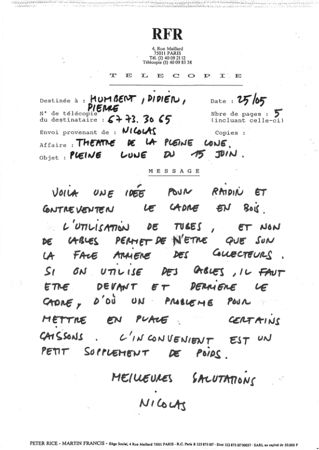 RFR
4, Rue Maillard
75011 PARIS
Tél. (1) 40 09 21 12
Télécopie (1) 40 09 83 38
TELECOPIE
Destinée à : HUMBERT, DIDIER, PIERRE
Date : 25/05
N° de télécopie du destinataire : 67 73. 30 65
Nbre de pages : 5 (incluant celle-ci)
Envoi provenant de : NICOLAS
Copies :
Affaire : THEATRE DE LA PLEINE LUNE.
Objet : PLEINE LUNE DU 15 JUIN.
MESSAGE
VOILÀ UNE IDÉE POUR RAIDIR ET
CONTREVENTER LE CADRE EN BOIS.
L'UTILISATION DE TUBES, ET NON
DE CABLES PERMET DE N'ETRE QUE SUR
LA FACE ARRIERE DES COLLECTEURS.
SI ON UTILISE DES CABLES, IL FAUT
ETRE DEVANT ET DERRIERE LE
CADRE, D'OÙ UN PROBLEME POUR
METTRE EN PLACE CERTAINS
CAISSONS. L'INCONVENIENT EST UN
PETIT SUPPLEMENT DE POIDS.
MEILLEURES SALUTATIONS
NICOLAS
PETER RICE - MARTIN FRANCIS - Siège Social, 4 Rue Maillard 75011 PARIS - R.C. Paris B